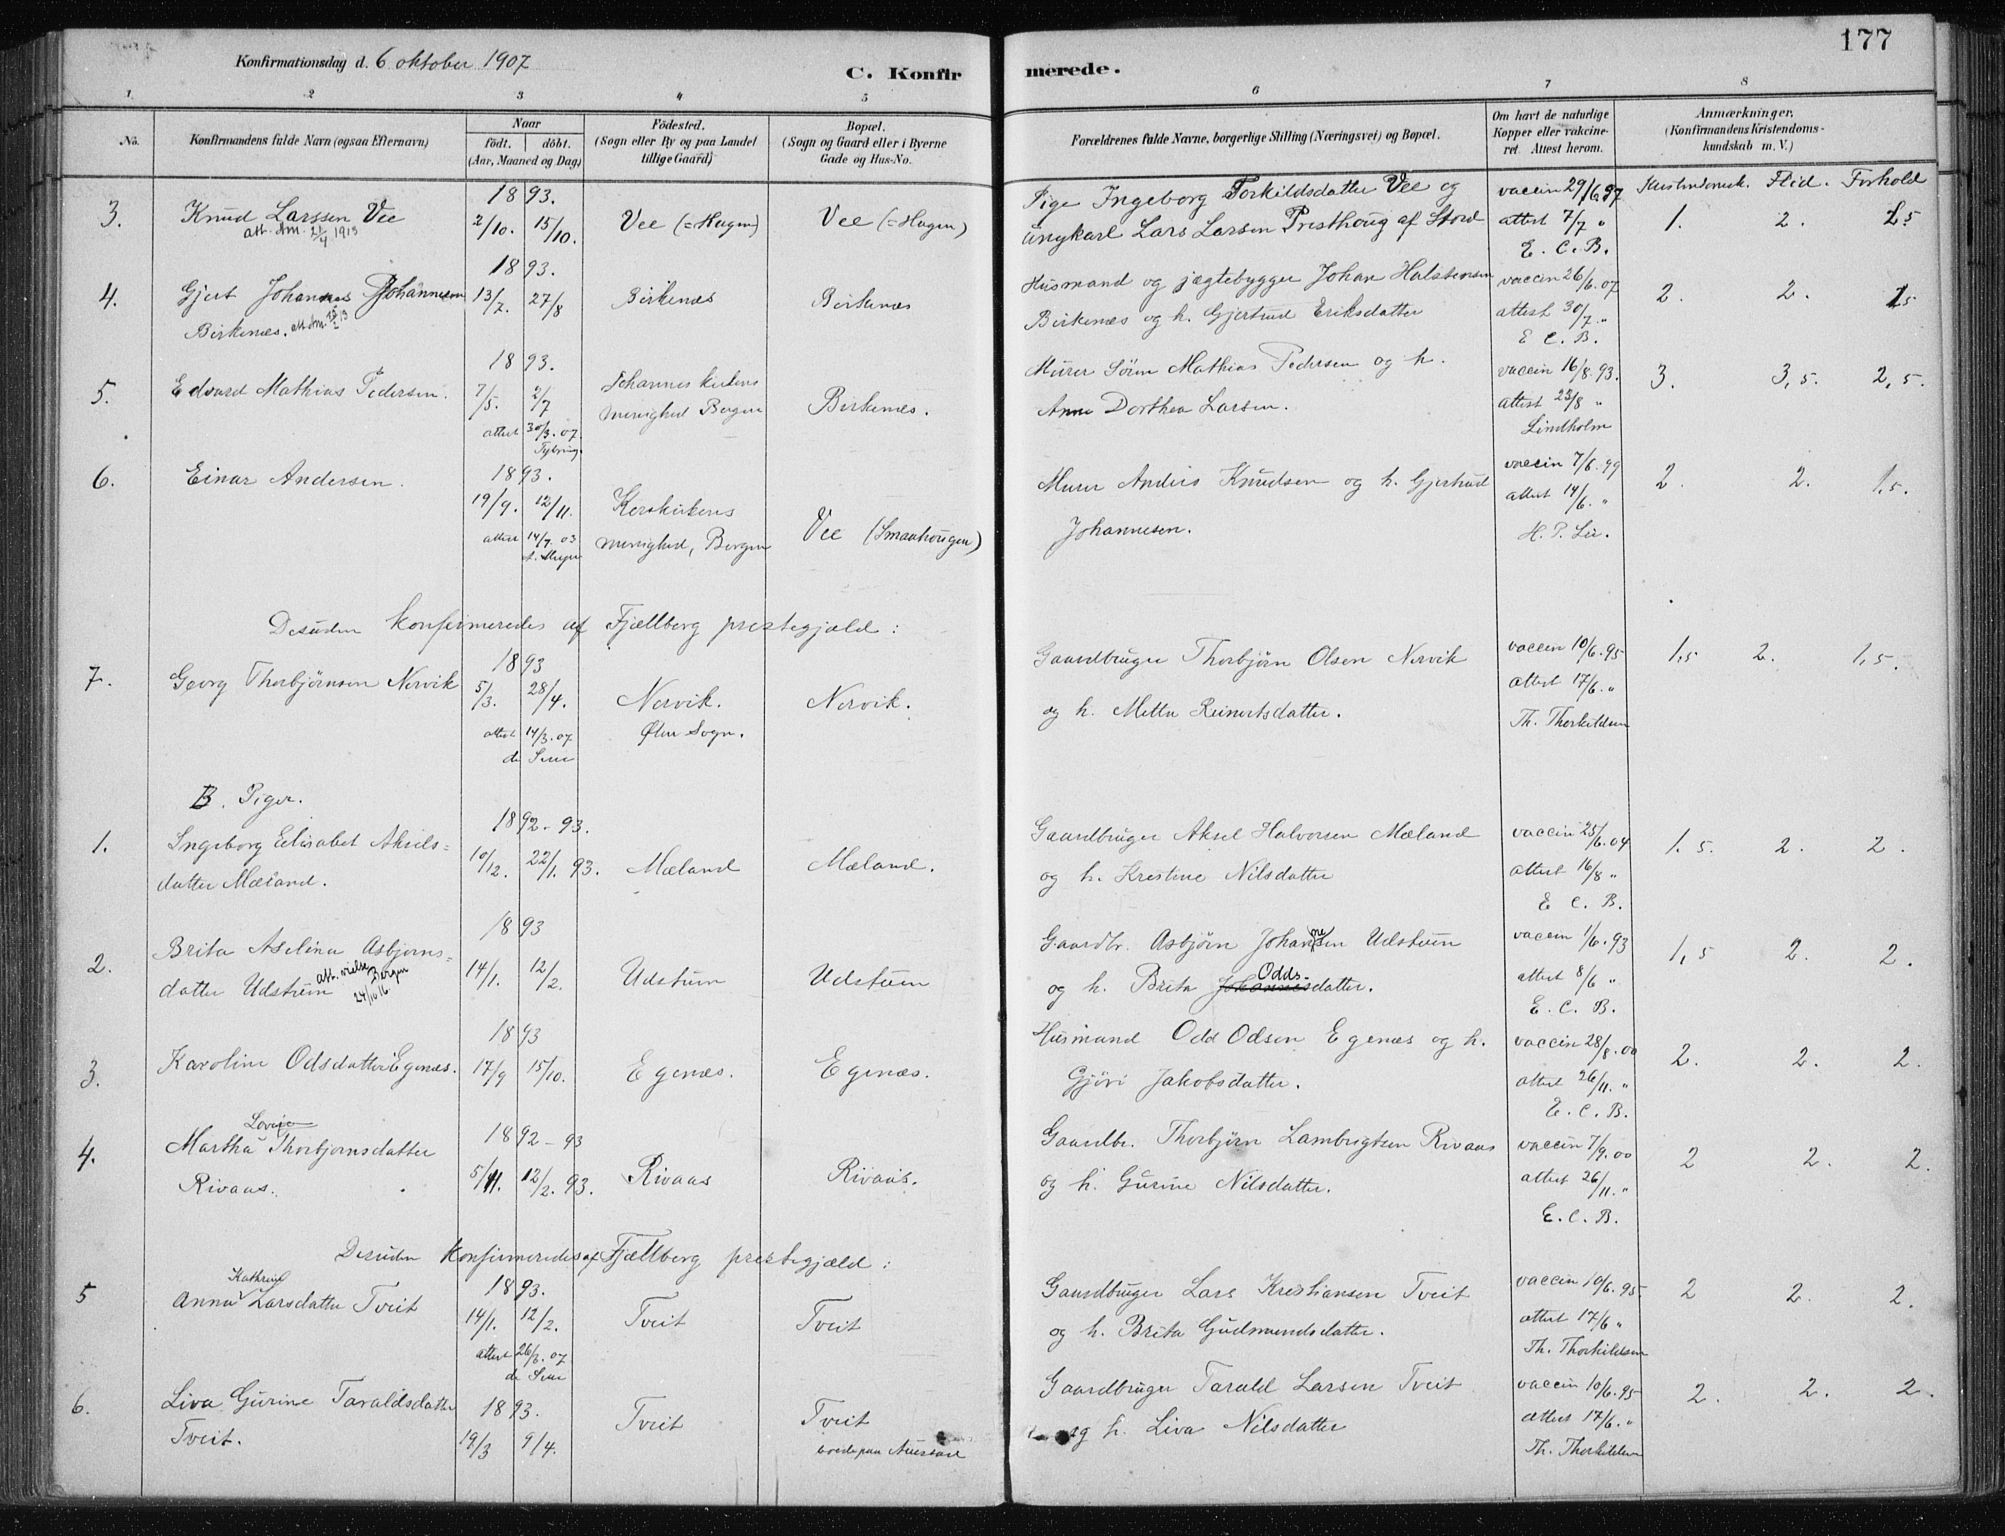 177
Konfirmationsdag d. 6 oktober 1907
C. Konfirmerede.
1. 2 3 4 5 6 7 8
No.
Konfirmandens fulde Navn (ogsaa Efternavn)
Naar
født. døbt.
(Aar, Maaned og Dag)
Fødested.
(Sogn eller By og paa Landet
tillige Gaard)
Bopæl.
(Sogn og Gaard eller i Byerne
Gade og Hus-No.
Forældrenes fulde Navne, borgerlige Stilling (Næringsvei) og Bopæl.
Om havt de naturlige
Kopper eller vakcine-
ret. Attest herom.
Anmærkninger.
(Konfirmandens Kristendoms-
kundskab m. V.)
Kristendomsk. Flid. Forhold
3. Knud Larssen Vee
att. Am. 21/4 1913
1893.
2/10. 15/10.
Vee (=Hagen) Vee (=Hagen)
Pige Ingeborg Torkildsdatter Vee og
ungkarl Lars Larsen Presthoug af Stord
vaccin 29/6.97
attest 7/7 "
E. C. B.
1. 2. 1.5
4. Gjert Johannes Johannesen
Birkenæs.
1893.
13/7. 27/8
Birkenæs Birkenæs
Husmand og jægtebygger Johan Halstensen
Birkenæs og h. Gjertrud Eriksdatter
vaccin 26/6.07
attest 30/7. "
E. C. B.
2. 2. 1.5
5. Edvard Mathias Pedersen.
1893.
7/5. 2/7
attest 30/3.07.
Johanneskirkens
menighed Bergen
Birkenæs.
Murer Søren Mathias Pedersen og h.
Anne Dorthea Larsen.
vaccin 16/8.93.
attest 23/8 "
Lindholm
3. 3,5. 2,5.
6. Einar Andersen.
1893.
19/9. 12/11.
attest 14/7.03
Korskirkens
menighed, Bergen
Vee (Smaahougen)
Murer Anders Knudsen og h. Gjertrud
Johannesen.
vaccin 7/6.99
attest 14/6. "
H. P. Lie.
2. 2. 1,5.
Desuden konfirmeredes af Fjellberg prestegjæld:
7. Georg Thorbjørnsen Nervik
1893
5/3. 28/4.
attest 14/3.07
de Seue
Nervik.
Ølen Sogn.
Nervik.
Gaardbruger Thorbjørn Olsen Nervik
og h. Metta Reinertsdatter.
vaccin 10/6.95
attest 17/6. "
Th. Thorkildsen
1,5 2. 1,5.
B. Piger.
1. Ingeborg Elisabet Aksels-
datter Mæland.
1892-93.
10/12. 22/1.93.
Mæland Mæland.
Gaardbruger Aksel Halvorsen Mæland
og h. Kristine Nilsdatter
vaccin 25/6.04
attest 16/8 "
E C. B.
1.5. 2. 2.
2. Brita Aselina Asbjørns-
datter Udstuen
att. vielse Bergen
24/10 16.
1893
14/1. 12/2.
Udstuen Udstuen
Gaardbr. Asbjørn Johannesen Udstuen
og h. Brita Johannes Odds-datter.
vaccin 1/6.93
attest 8/6 "
E. C. B.
1,5 2. 2.
3. Karoline Odsdatter Egenæs.
1893
17/9 15/10.
Egenæs. Egenæs.
Husmand Odd Odsen Egenæs og h.
Gjøri Jakobsdatter.
vaccin 28/8.00
attest 26/11. "
E. C. B.
2. 2. 2.
4. Martha Lovise Thorbjørnsdatter
Rivaas.
1892-93
5/11. 12/2.93.
Rivaas Rivaas.
Gaardbr. Thorbjørn Lambrigtsen Rivaas
og h. Gurine Nilsdatter.
vaccin 7/9.00
attest 26/11. "
E. C. B.
2 2. 2.
Desuden konfirmeredes af Fjellberg prestegjæld:
5 Anna Kathrine Larsdatter Tveit
1893.
14/1. 12/2.
attest 26/3.07
de Seue
Tveit Tveit
Gaardbruger Lars Kristiansen Tveit
og h. Brita Gudmundsdatter.
vaccin 10/6.95
attest 17/6 "
Th. Thorkildsen
2 2. 2.
6. Liva Gurine Taraldsdatter
Tveit.
1893.
19/3 9/4.
Tveit Tveit
Gaardbruger Tarald Larsen Tveit
og h. Liva Nilsdatter
vaccin 10/6.95
attest 17/6. "
Th. Thorkildsen
2. 2. 2.